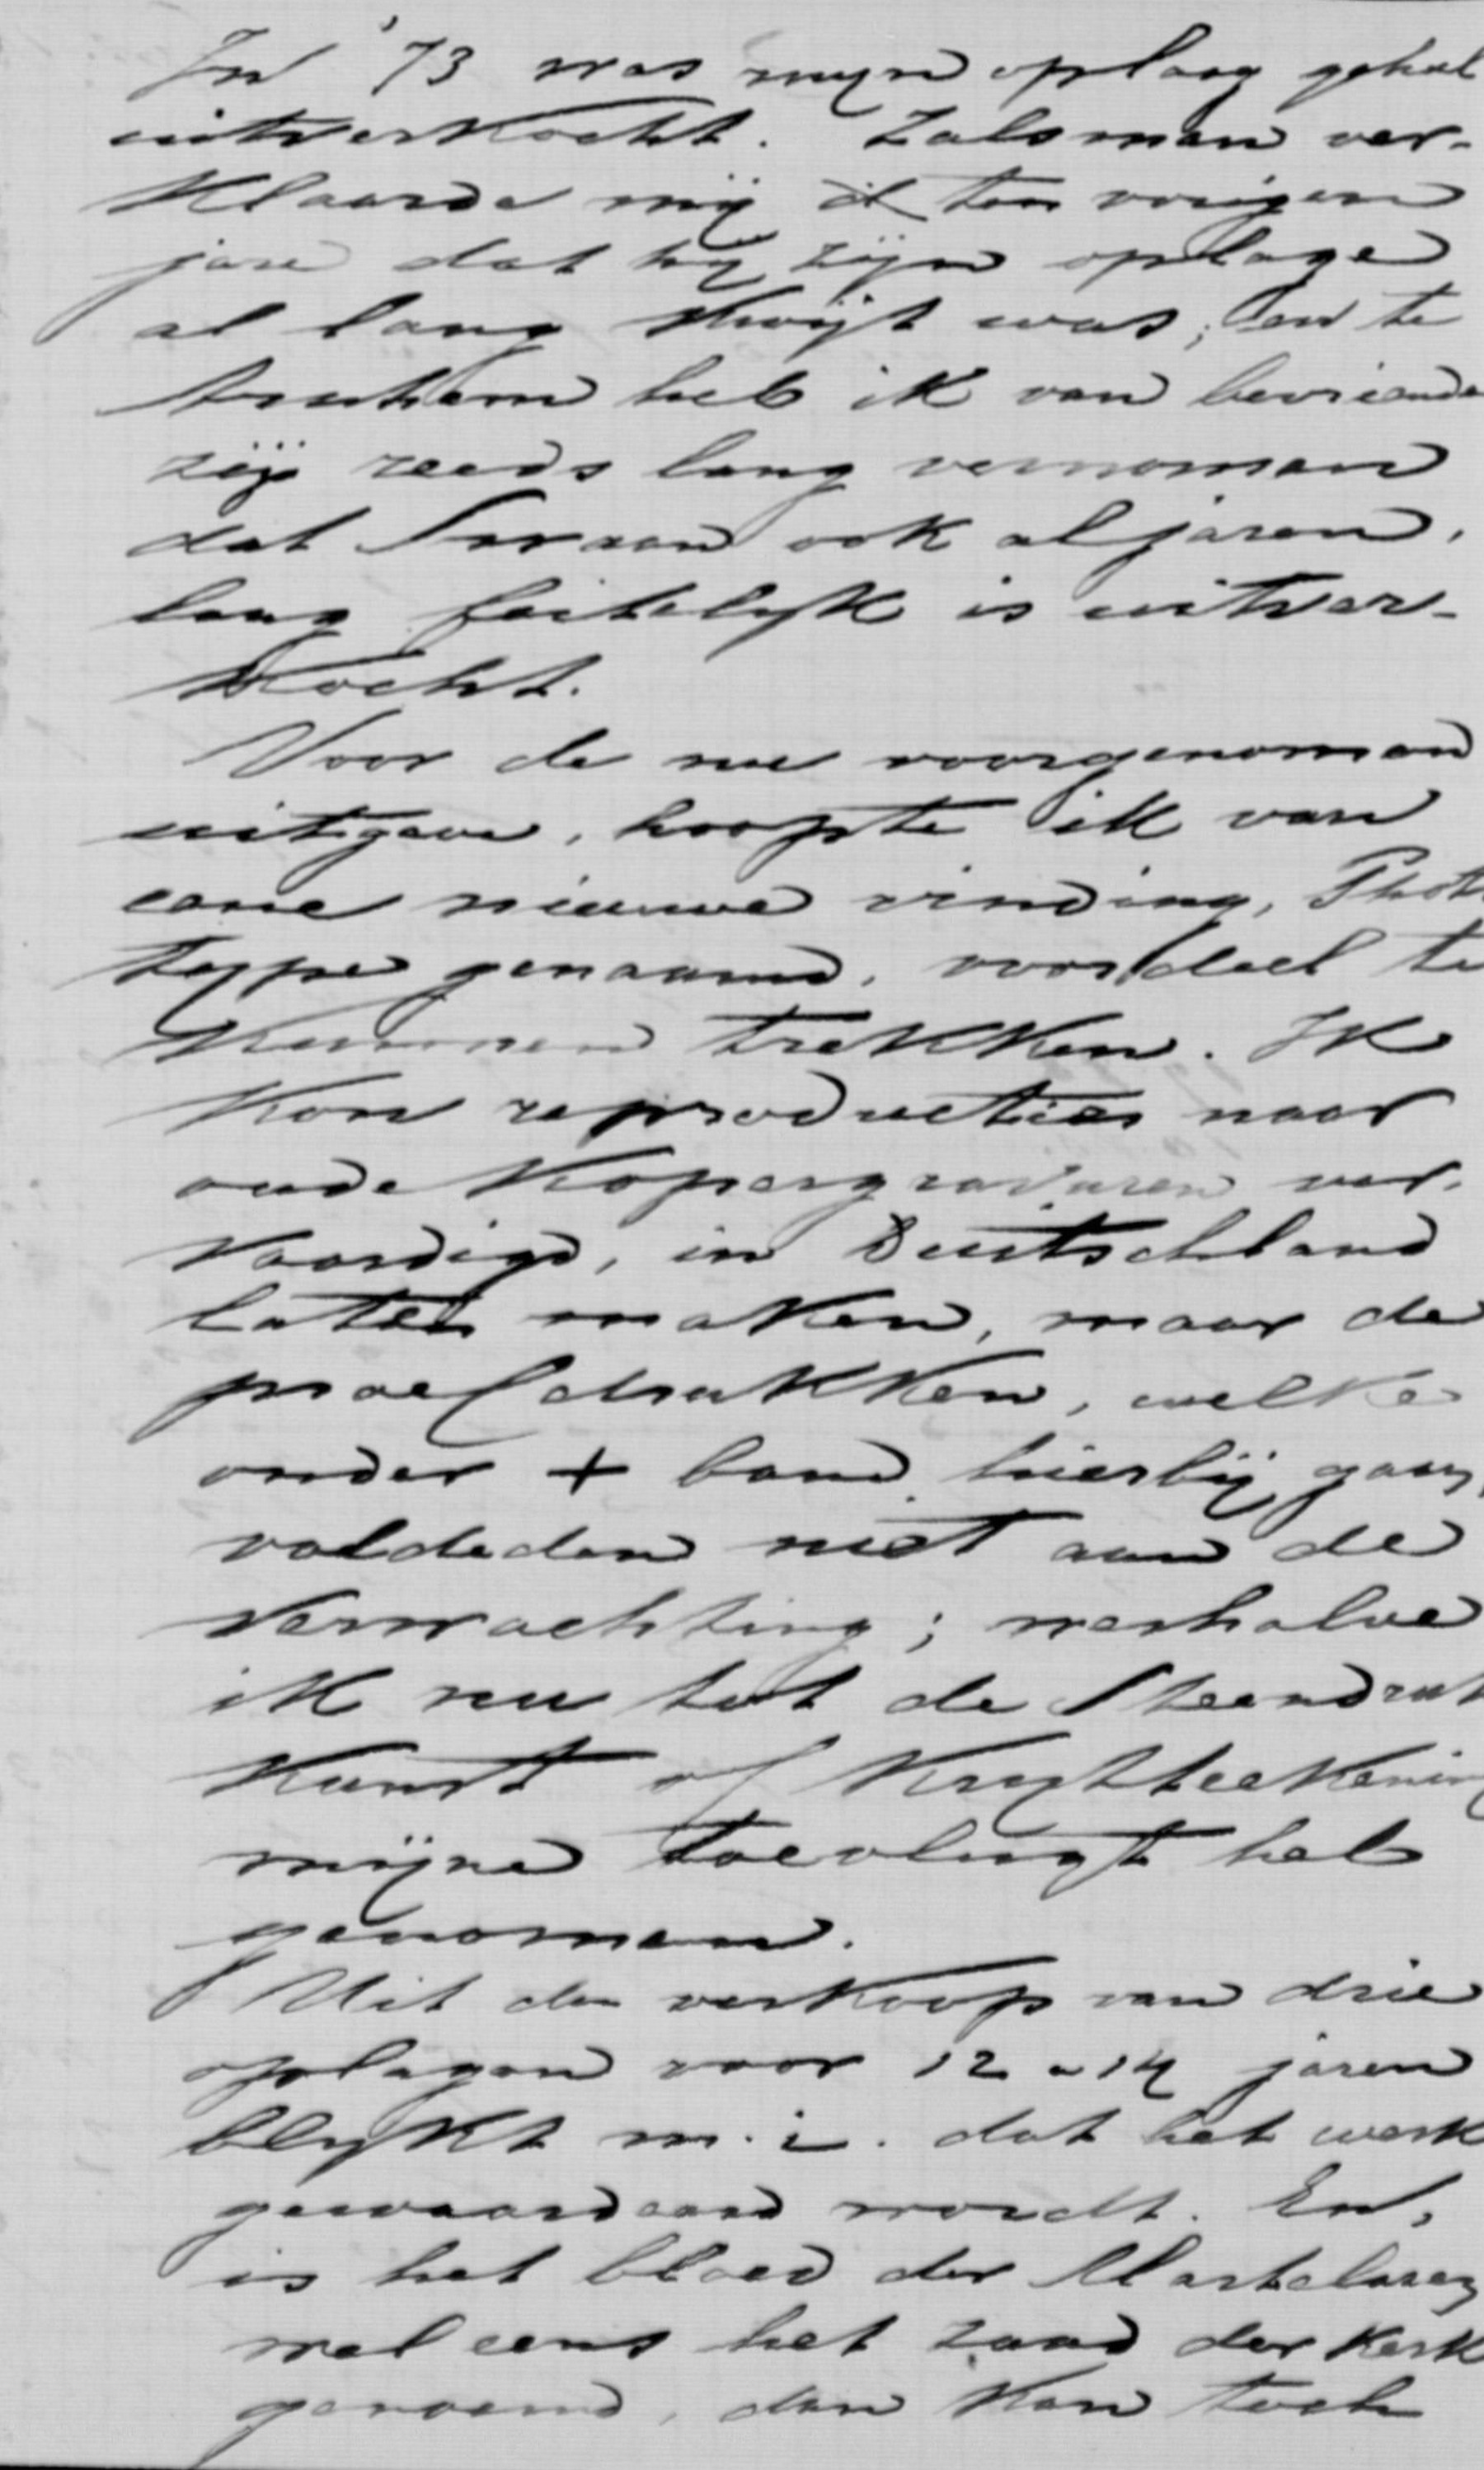 In '73 was mijn oplaag geheel
uitverkocht. Zalsman ver-
klaarde mij ten vorigen
jare dat hij zijn oplage
al lang kwijt was; en te
Arnhem heb ik van bevriende
zijde reeds lang vernomen
dat Swaan ook al jaren
lang feitelijk is uitver-
kocht.
Voor de nu voorgenomen
uitgave, hoopte ik van
eene nieuwe vinding, Photo
type genaamd, voordeel te
kunnen trekken. Ik
kon reproducties naar
oude kopergravuren ver-
vaardigd, in Duitschland
laten maken, maar de
proefdrukken, welke
onder + band hierbij gaan,
voldeden niet aan de
verwachting; weshalve
ik nu tot de Steendruk
kunst of Krijtteekening
mijne toevlugt heb
genomen.
Uit den verkoop van drie
oplagen voor 12 a 14 jaren
blijkt m. i. dat het werk
gewaardeerd wordt. En,
is het bloed der Martelaren
wel eens het zaad der Kerk
genoemd, dan kan toch